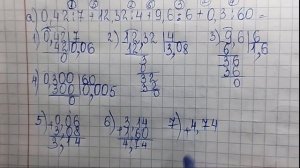 а) 0,42:7+12,32:4+9,6:6+0,3:60=
1) 0,42|7
42 0,06
0
2) 12,32|4
12 3,08
3
0
32
32
0
3) 9,6|6
6 1,6
36
36
0
4) 0,300|60
300 0,005
0
5) +0,06
3,08
3,14
6) +3,14
1,60
4,74
7) +4,74